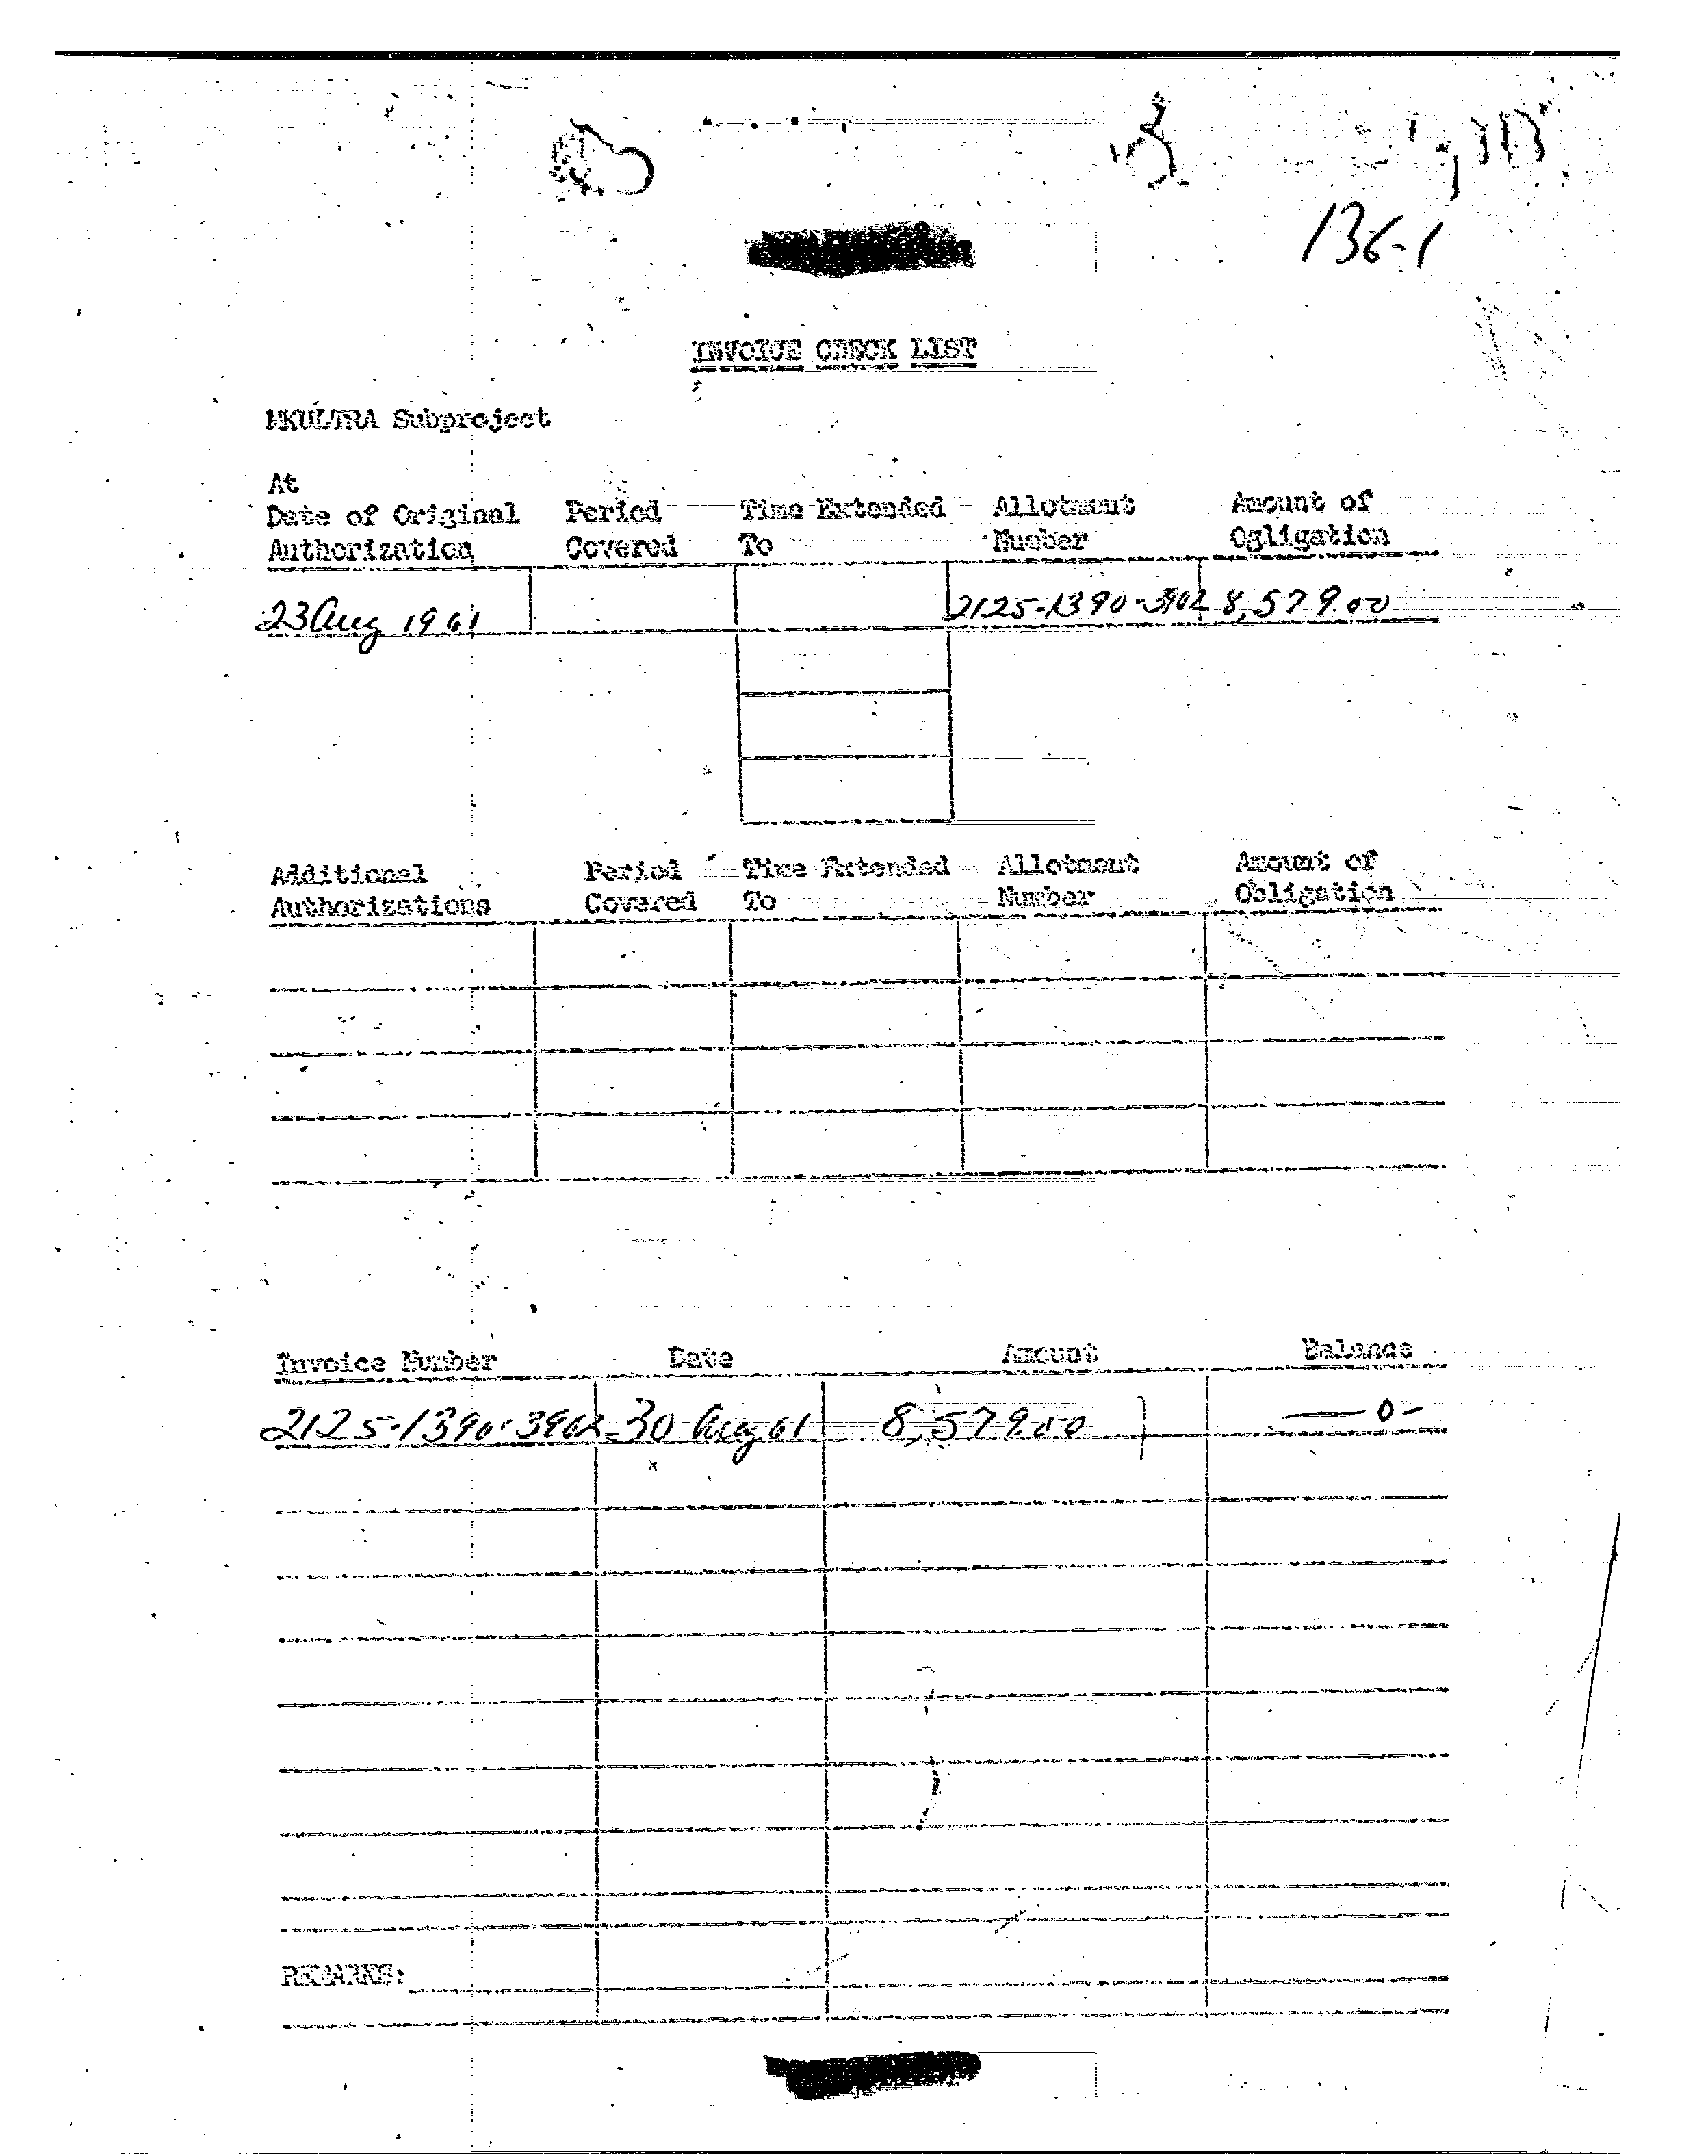 136-1
INVOICE CHECK LIST
MKULTRA Subproject
At
Date of Original Authorization
Period Covered
Time Extended To
Allotment Number
Amount of Ogligation
23 Aug 1961
2125-1390-3902
8,579.00
Additional Authorizations
Period Covered
Time Extended To
Allotment Number
Amount of Obligation
Invoice Number
Date
Amount
Balance
2125-1390-3902
30 Aug 61
8,579.00
— 0 -
REMARKS: